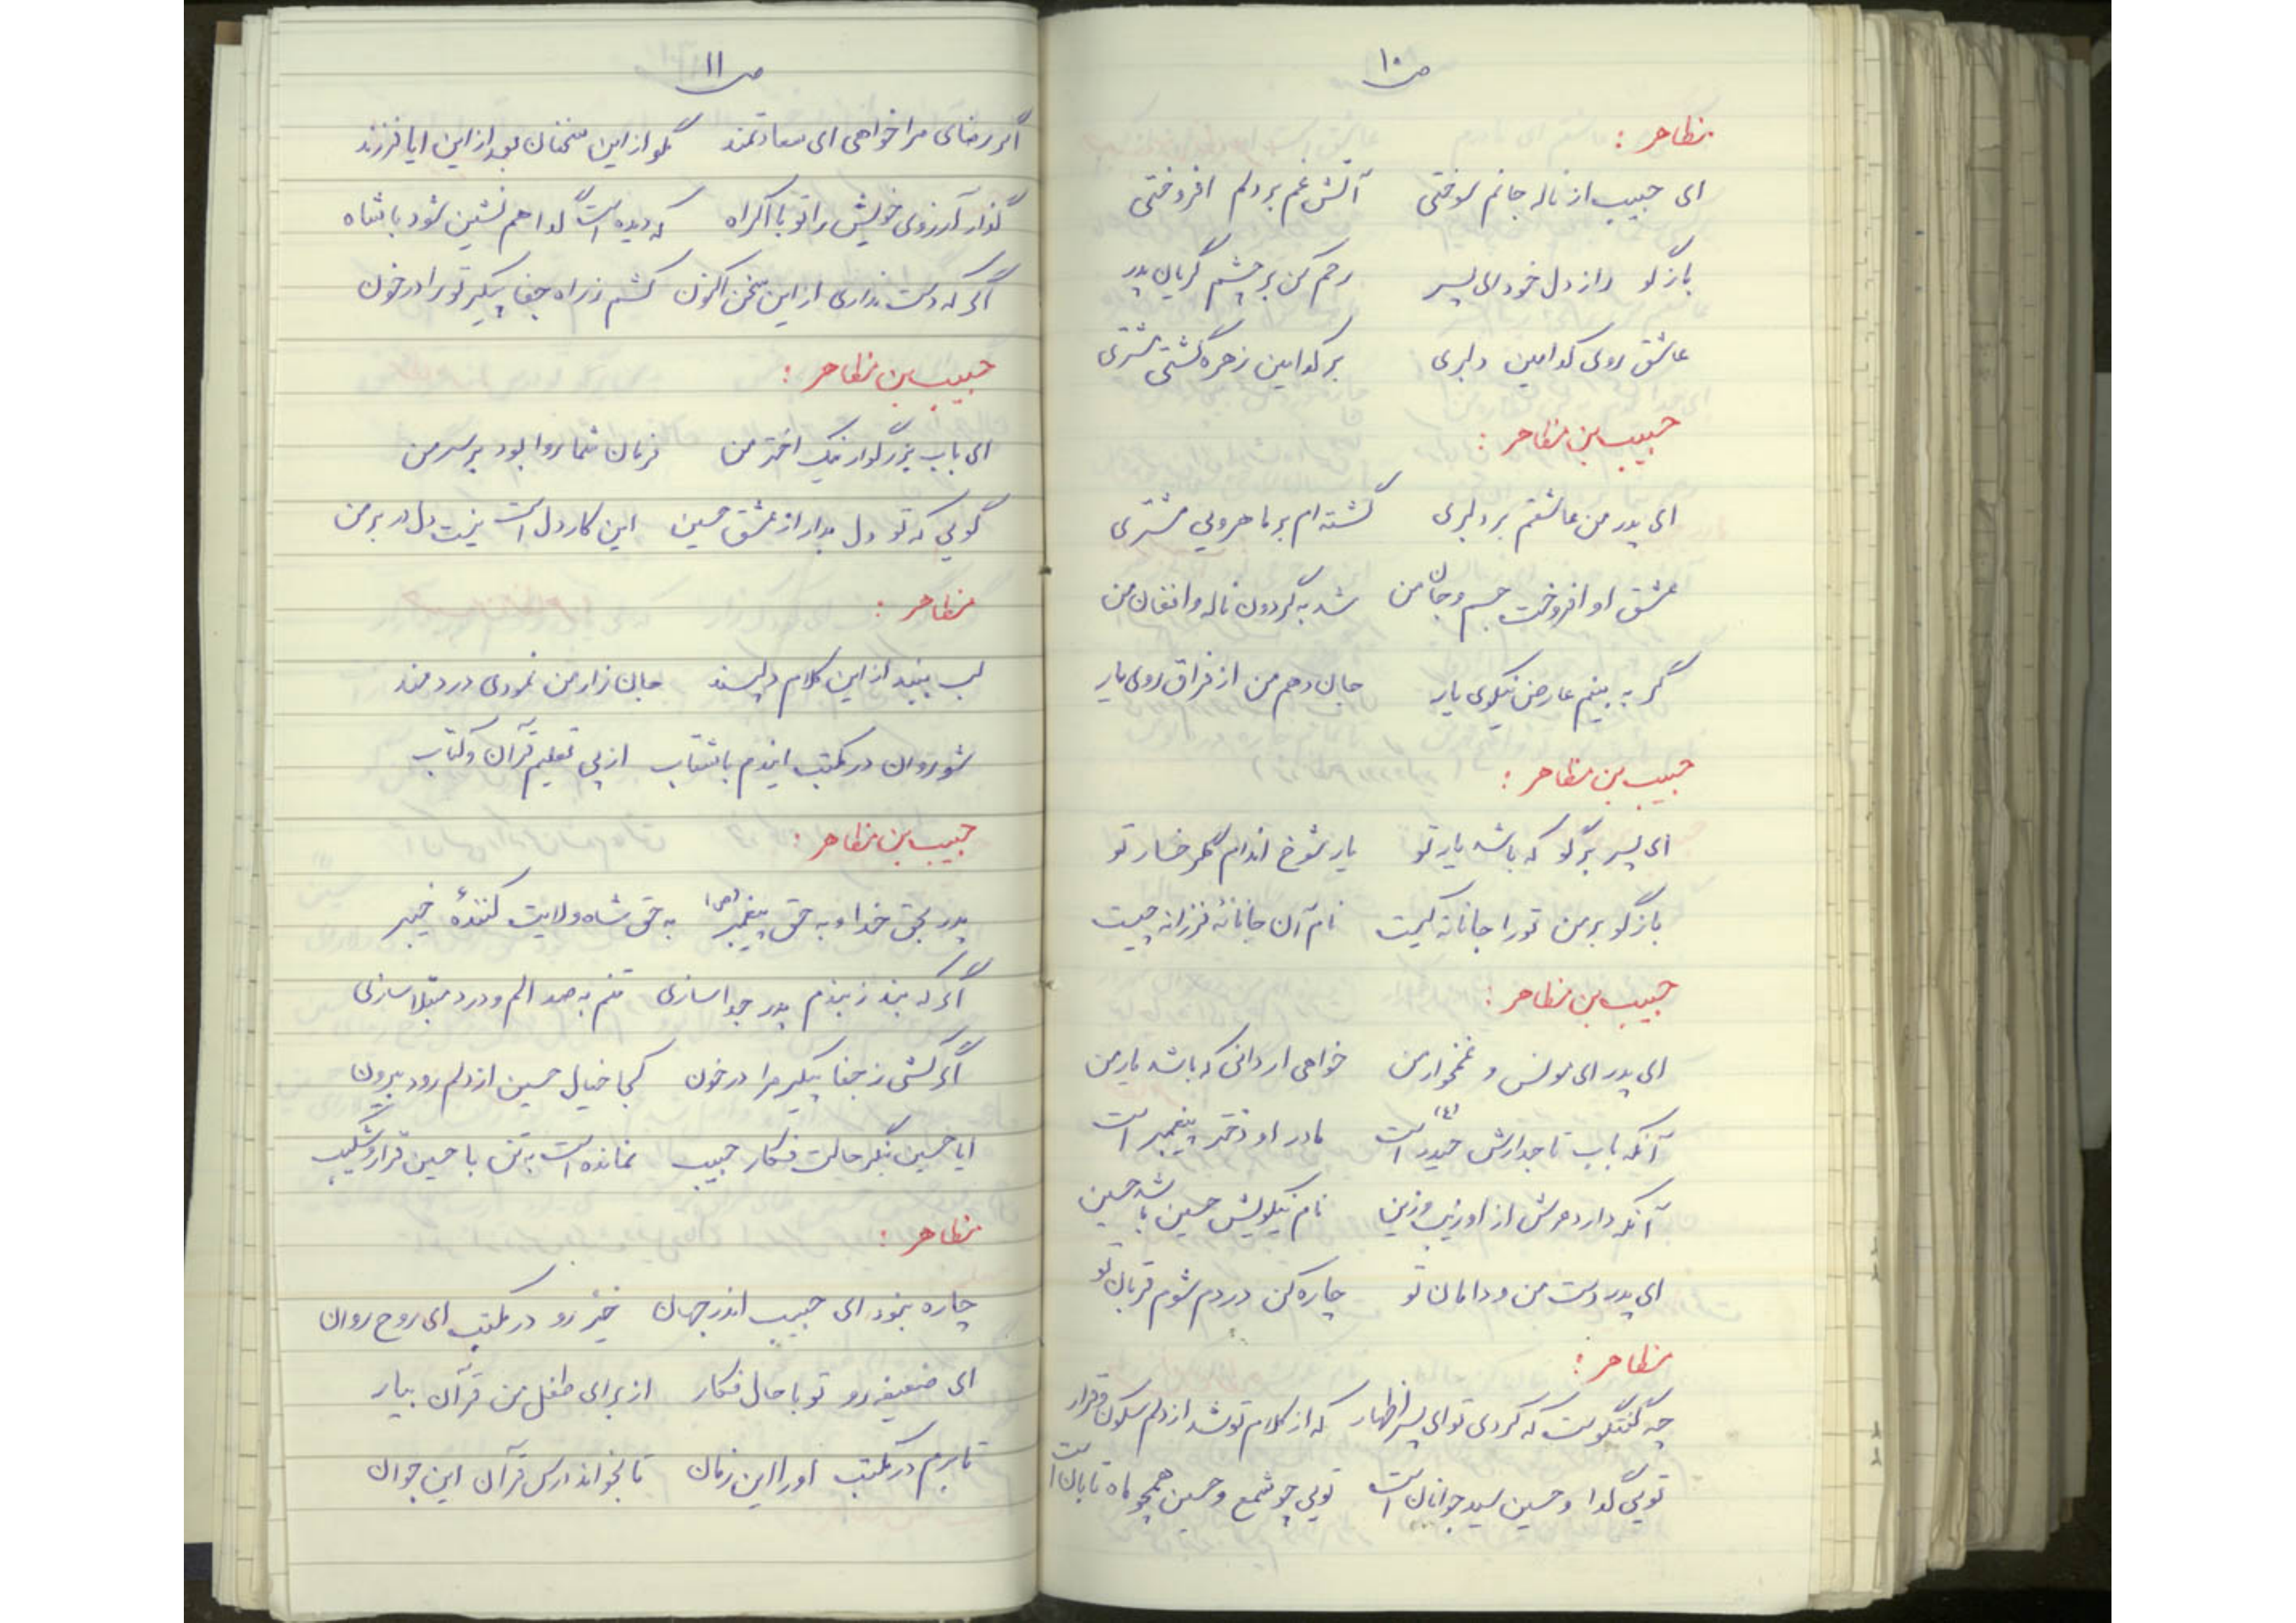 ص ۱۰
مظاهر :
ای حبیب از ناله جانم سوختی آتش غم بر دلم افروختی
بازگو راز دل خود ای پسر رحم کن بر چشم گریان پدر
عاشق روی کدامین دلبری بر کدامین زهره گشتی مشتری
حبیب بن مظاهر :
ای پدر من عاشقم بر دلبری گشته ام بر ماهرویی مشتری
عشق او افروخت جسم و جان من شد به گردون ناله و افغان من
گر به بینم عارض نیکوی یار جان دهم من از فراق روی یار
حبیب بن مظاهر :
ای پسر برگو که باشد یار تو یار شوخ اندام گلرخسار تو
بازگو بر من تو را جانانه کیست نام آن جانانهٔ فرزانه چیست
حبیب بن مظاهر :
ای پدر ای مونس و غمخوار من خواهی ار دانی که باشد یار من
آنکه باب تاجدارش حیدر (ع) است مادر او دختر پیغمبر است
آنکه دارد عرش از او زیب و زین نام نیکویش حسین باشد حسین
ای پدر دست من و دامان تو چاره کن دردم شوم قربان تو
مظاهر :
چه گفتگوست که کردی تو ای پسر اظهار که از کلام تو شد از دلم سکون و قرار
تویی گدا و حسین سید جوانان است تویی چو شمع و حسین همچو ماه تابان است
ص ۱۱
اگر رضای مرا خواهی ای سعادتمند مگو از این سخنان بعد از این ایا فرزند
گذار آرزوی خویش را تو با اکراه که دیده است گدا هم نشین شود با شاه
اگر که دست نداری از این سخن اکنون کشم ز راه جفا پیکر تو را در خون
حبیب بن مظاهر :
ای باب بزرگوار نیک اختر من فرمان شما روا بود بر سر من
گویی که تو دل بدار از عشق حسین این کار دل است نیست دل در بر من
مظاهر :
لب ببند از این کلام دلپسند جان زار من نمودی دردمند
شو روان در مکتب ایندم با شتاب از پی تعلیم قرآن و کتاب
حبیب بن مظاهر :
پدر بحق خدا و به حق پیغمبر (ص) به حق شاه ولایت کنندهٔ خیبر
اگر که بند ز بندم پدر جدا سازی تنم به صد الم و درد مبتلا سازی
اگر کشی ز جفا پیکر مرا در خون کجا خیال حسین از دلم رود بیرون
ایا حسین بنگر حالت فکار حبیب نمانده است به تن یا حسین قرار و شکیب
مظاهر :
چاره نبود ای حبیب اندر جهان خیز رو در مکتب ای روح روان
ای ضعیفه رو تو با حال فکار از برای طفل من قرآن بیار
تا برم در مکتب او را این زمان تا بخواند درس قرآن این جوان